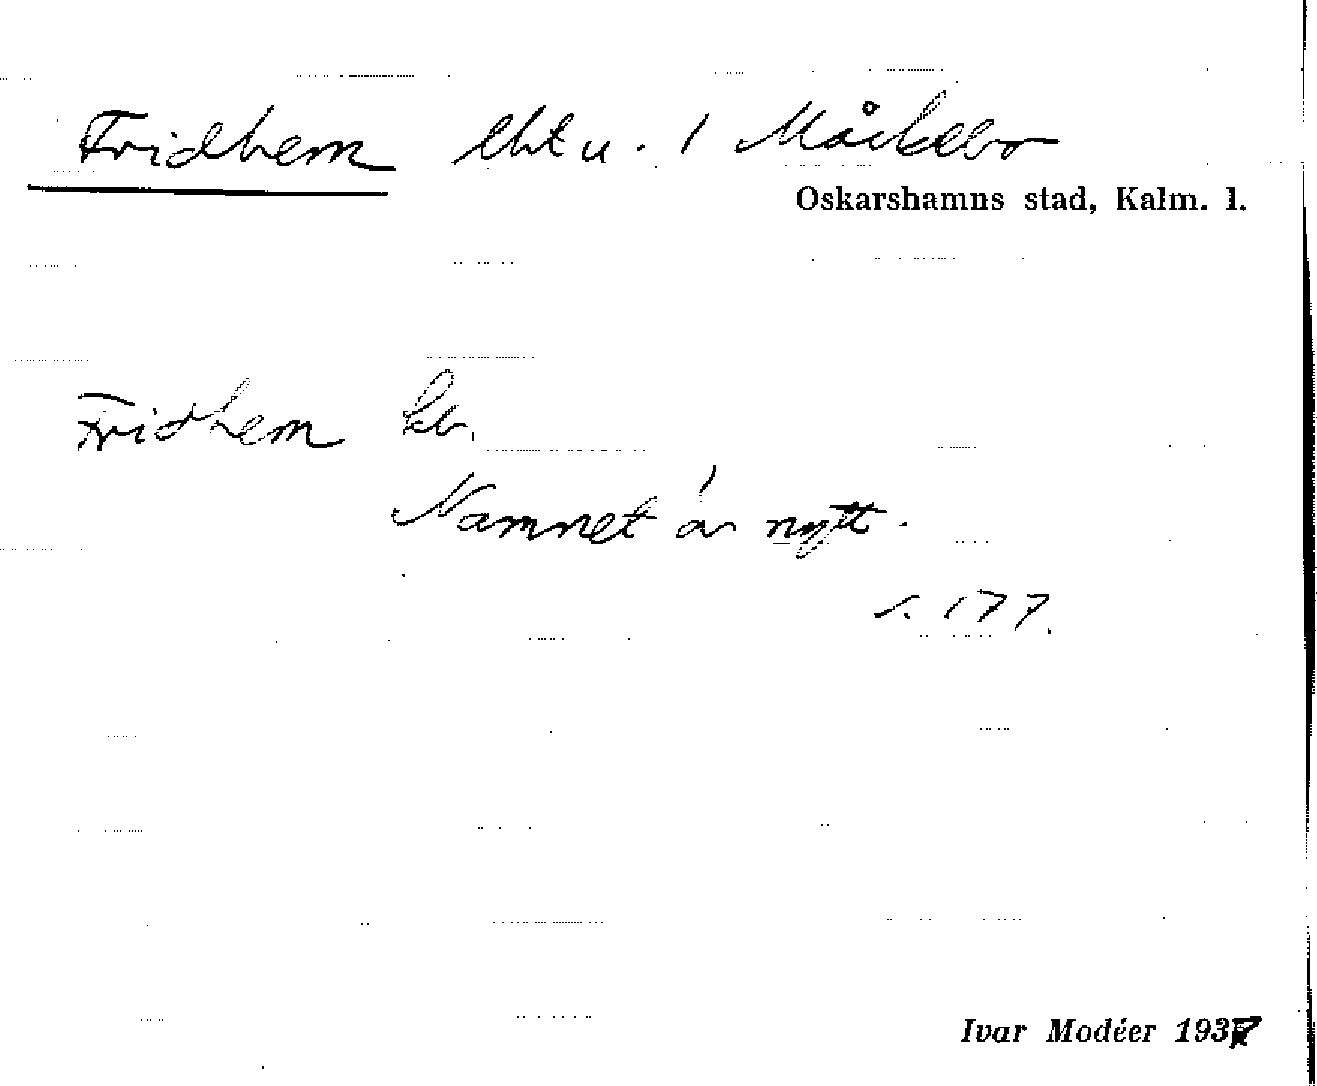 Fridhem lht u. 1 Måckebo
Oskarshamns stad, Kalm. l.
Fridhem
Namnet är nytt.
s. 177.
Ivar Modéer 1937